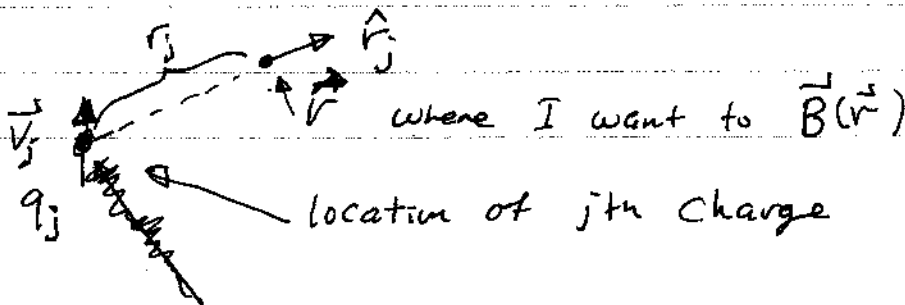 r_j r̂_j
v⃗_j r⃗ where I want to B⃗(r⃗)
q_j location of jth charge